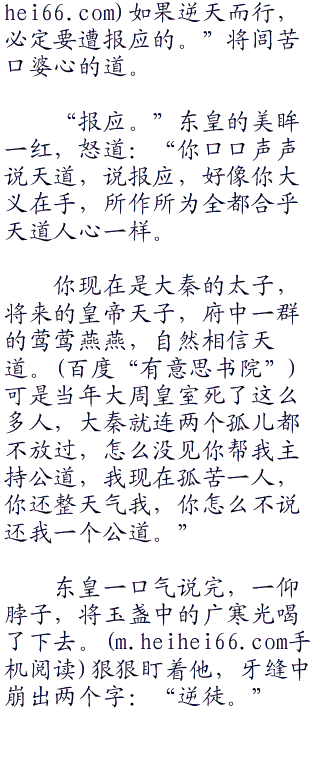 hei66.com)如果逆天而行，
必定要遭报应的。”将闾苦
口婆心的道。
“报应。”东皇的美眸
一红，怒道：“你口口声声
说天道，说报应，好像你大
义在手，所作所为全都合乎
天道人心一样。
你现在是大秦的太子，
将来的皇帝天子，府中一群
的莺莺燕燕，自然相信天
道。(百度“有意思书院”)
可是当年大周皇室死了这么
多人，大秦就连两个孤儿都
不放过，怎么没见你帮我主
持公道，我现在孤苦一人，
你还整天气我，你怎么不说
还我一个公道。”
东皇一口气说完，一仰
脖子，将玉盏中的广寒光喝
了下去。(m.heihei66.com手
机阅读)狠狠盯着他，牙缝中
崩出两个字：“逆徒。”